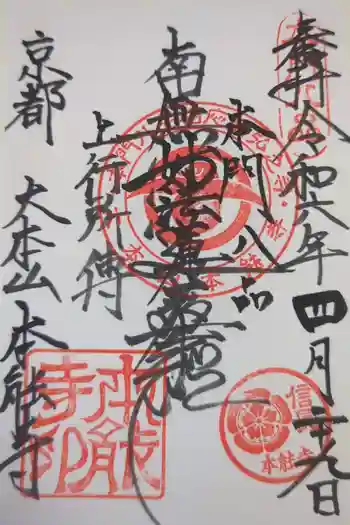 奉拝 令和六年
四月二十九日
本門八品
南無妙法蓮華経
上行所傳
京都 大本山 本能寺
本能寺印
信長
本能寺